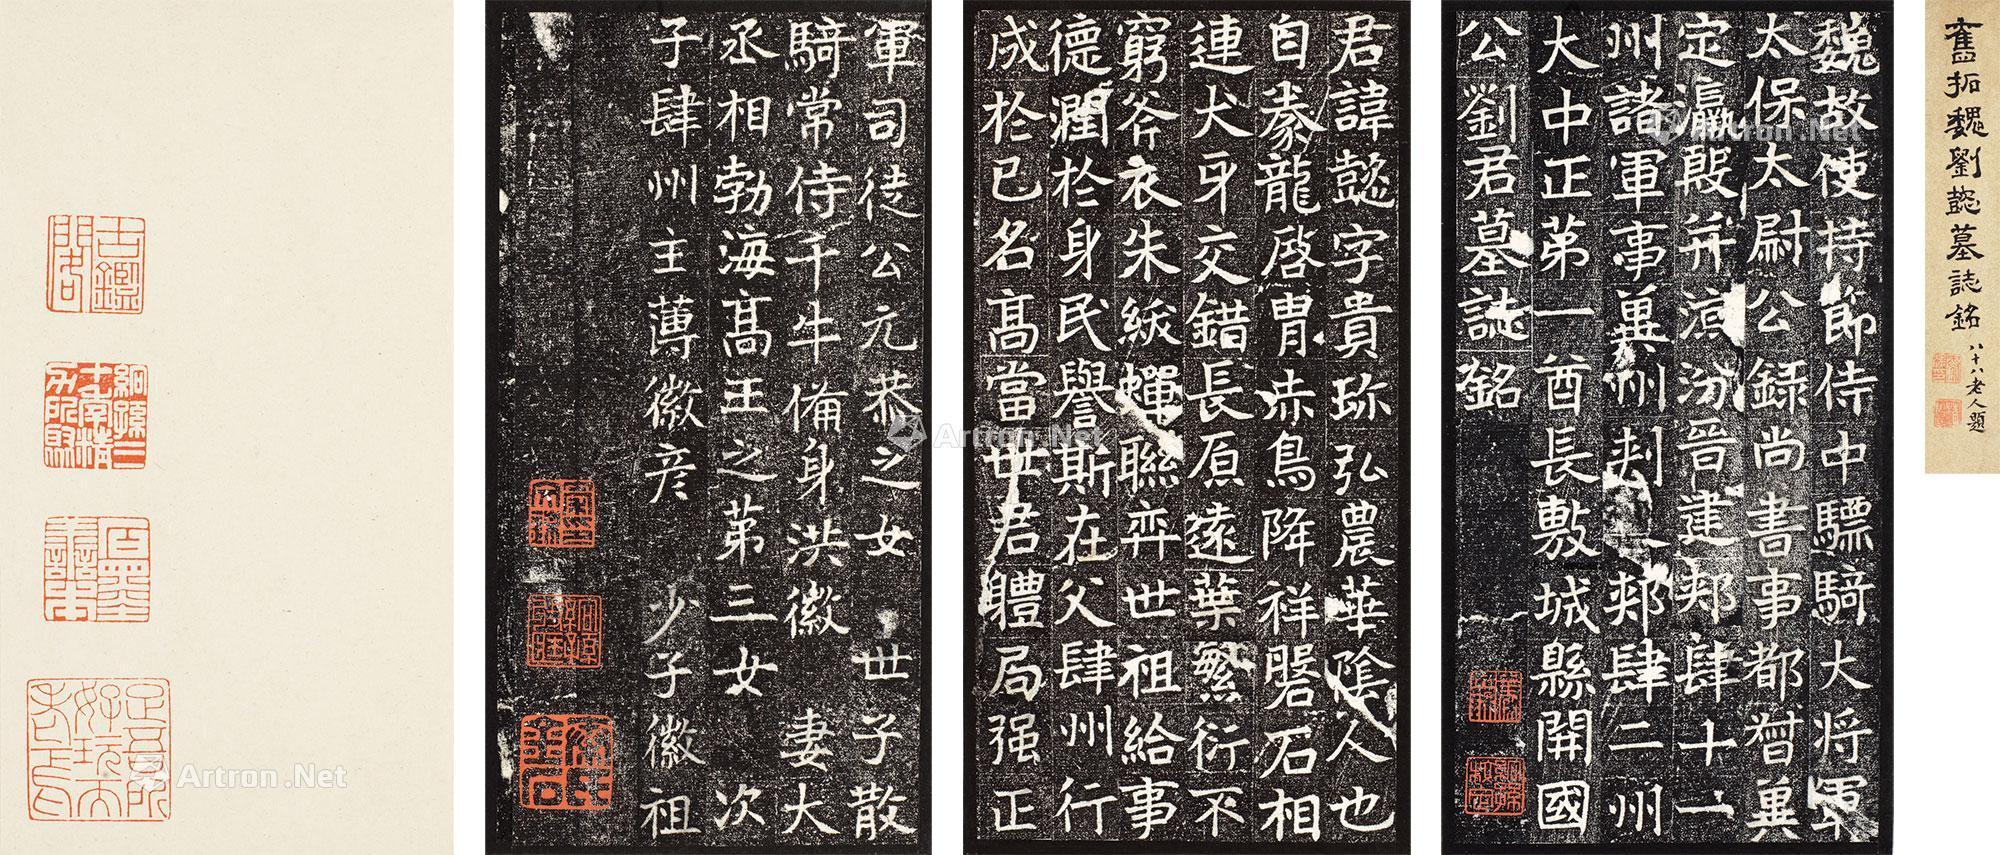 舊拓魏劉懿墓誌銘 八十八老人題
魏故使持節侍中驃騎大將軍
太保太尉公録尚書事都督冀
定瀛殷并涼汾晉建郟肆十一
州諸軍事冀州刾 郟肆二州
大中正第一酋長敷城縣開國
公劉君墓誌銘
君諱懿字貴珎弘農華陰人也
自豢龍啓胄赤鳥降祥磐石相
連犬牙交錯長原遠葉繁衍不
窮斧衣朱紱蟬聯弈世祖給事
德潤於身民譽斯在父肆州行
成於已名高當世君體局强正
軍司徒公元恭之女 世子散
騎常侍千牛備身洪徽 妻大
丞相勃海高王之第三女 次
子肆州主薄徽彦 少子徽祖
古鑑閣
Artron.Net
Artron.Net
Artron.Net